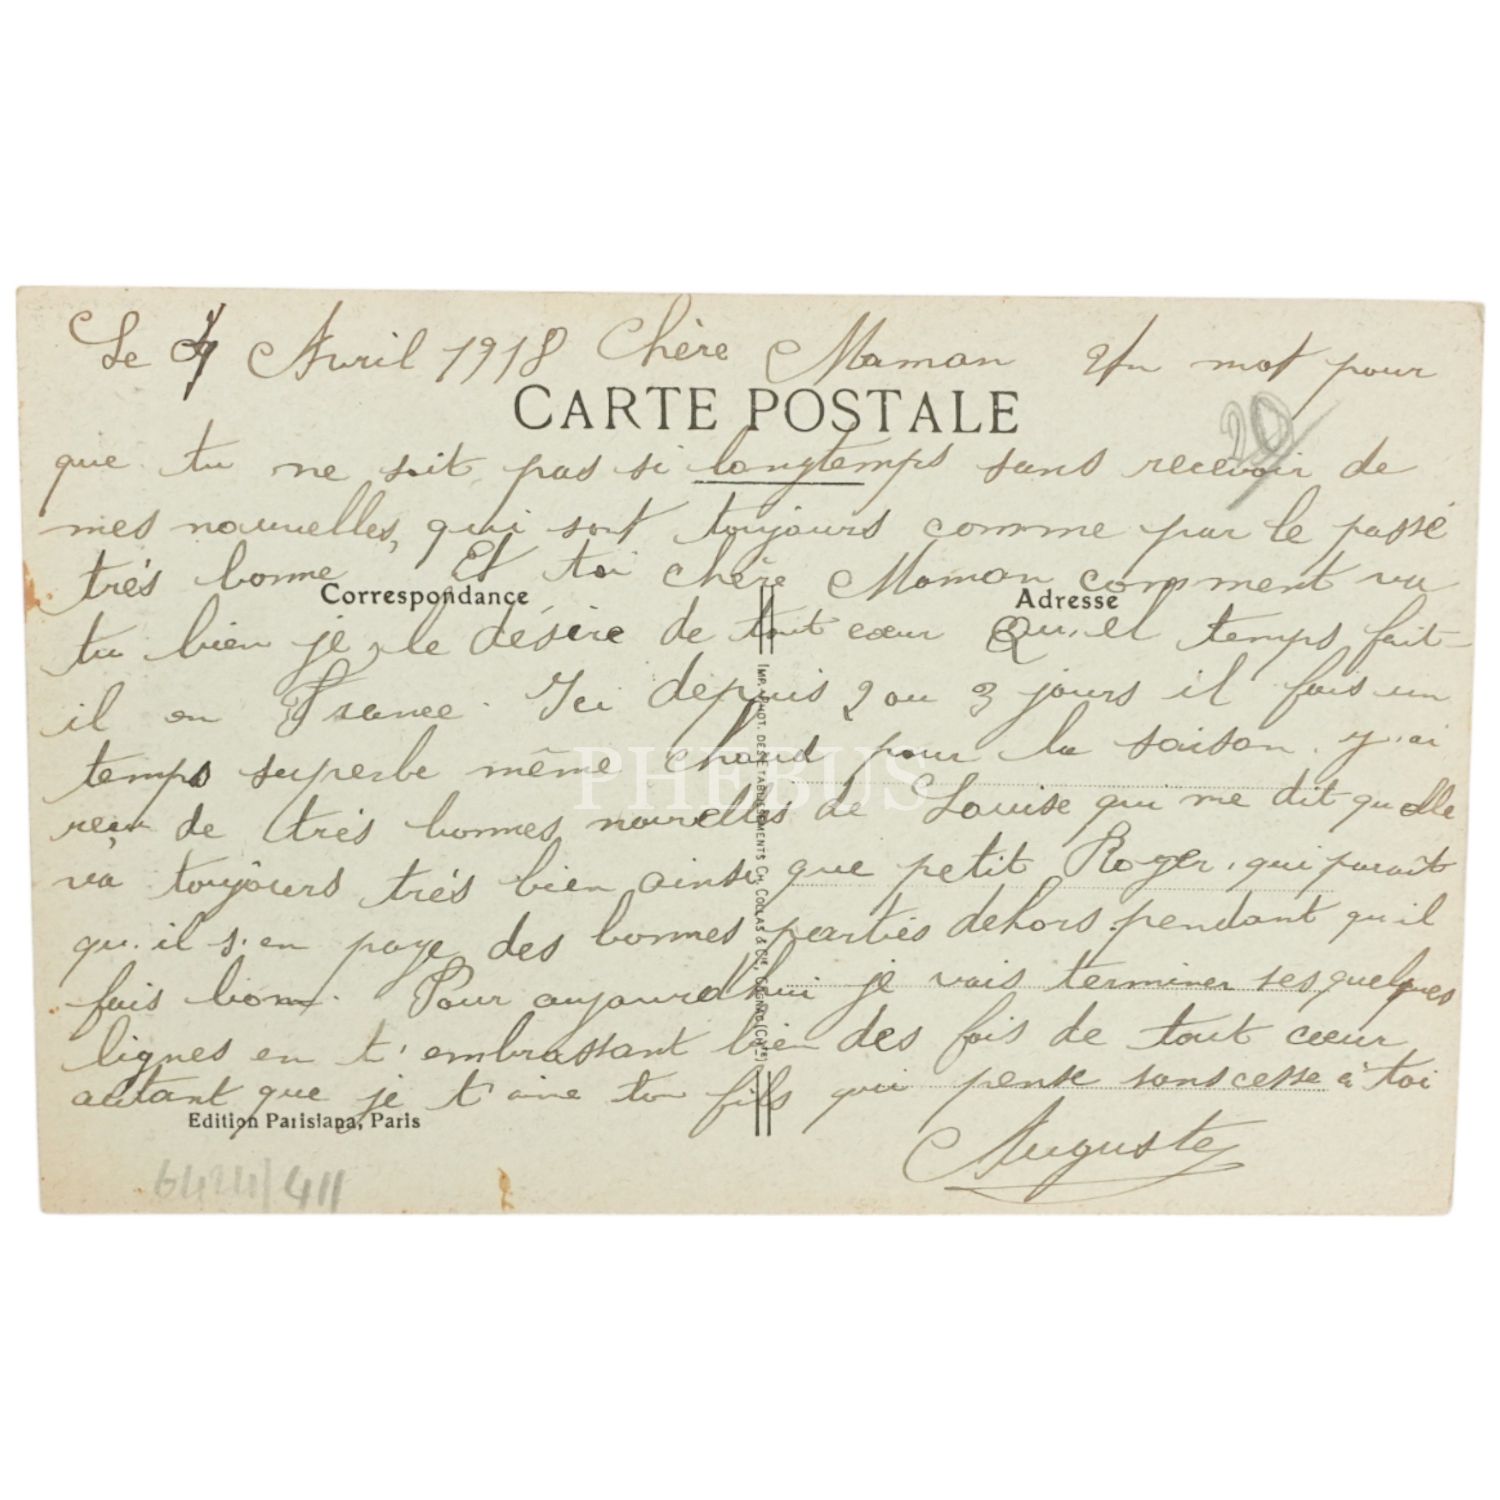 Le 4 Avril 1918 Chère Maman Un mot pour
CARTE POSTALE
20
que tu ne soit pas si longtemps sans recevoir de
mes nouvelles, qui sont toujours comme par le passé
trés bonne Et toi chère Maman comment va
Correspondance
Adresse
tu bien je le désire de tout cœur Qu'el temps fait-
il en France. Ici depuis 2 ou 3 jours il fais un
temps superbe même chaud pour la saison. J'ai
reçu de trés bonnes nouvelles de Louise qui me dit qu'elle
va toujours trés bien ainsi que petit Roger, qui parait
qu'il s'en paye des bonnes parties dehors pendant qu'il
fais bon. Pour aujourd'hui je vais terminer ses quelques
lignes en t'embrassant bien des fois de tout cœur
autant que je t'aime ton fils qui pense sans cesse à toi
Edition Parisiana, Paris
Auguste
IMP. PHOT. DES ETABLISSEMENTS CH. COLLAS & Cie, COGNAC (Chte)
PHEBUS